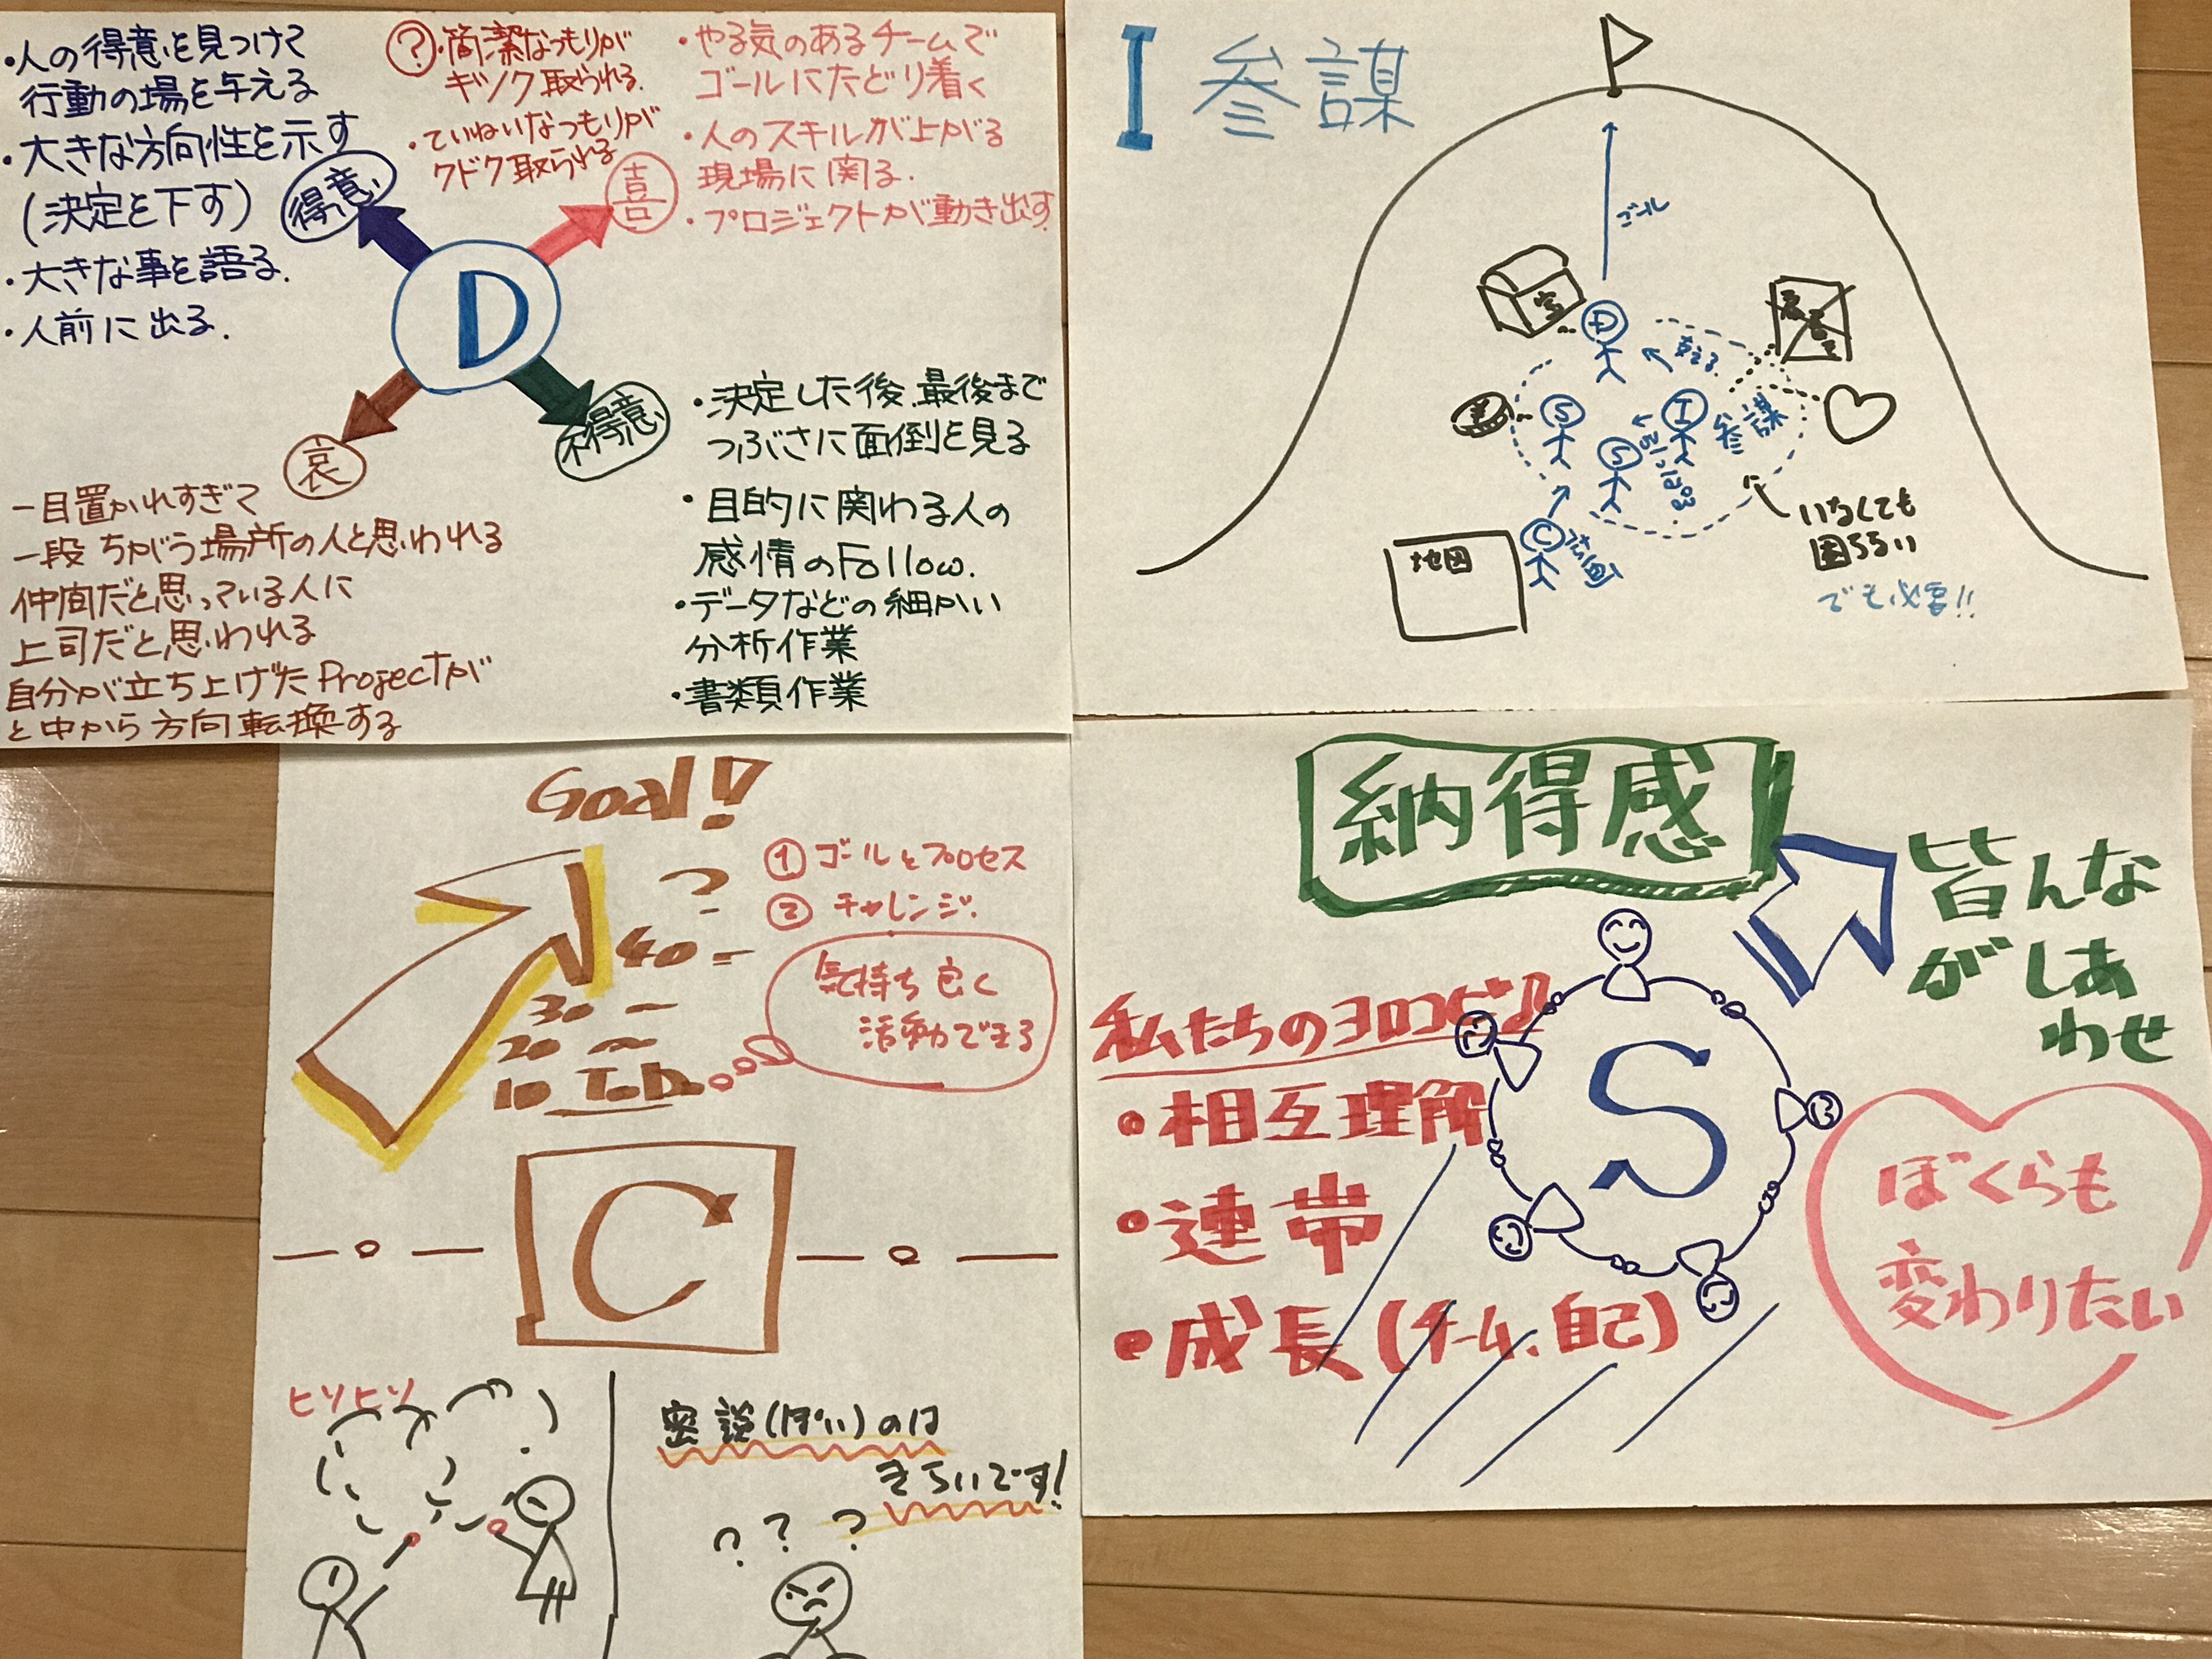 ・人の得意を見つけて
行動の場を与える
・大きな方向性を示す
(決定を下す)
・大きな事を語る.
・人前に出る.
得意
?
・簡潔なつもりが
ギソク取られる.
・ていねいなつもりが
クドク取られる
喜
・やる気のあるチームで
ゴールにたどり着く
・人のスキルが上がる
現場に関る.
・プロジェクトが動き出す.
D
哀
一目置かれすぎて
一段ちがう場所の人と思われる
仲間だと思っている人に
上司だと思われる
自分が立ち上げたProjectが
と中から方向転換する
不得意
・決定した後、最後まで
つぶさに面倒を見る
・目的に関わる人の
感情のFollow.
・データなどの細かい
分析作業
・書類作業
I 参謀
ゴール
宝
D
支える
S
I
参謀
S
C
計画
地図
いなくても
困らない
でも必要!!
Goal!!
?
40
30
20
10 ToDo
① ゴールとプロセス
② チャレンジ.
気持ち良く
活動できる
C
ヒソヒソ
密談(ぽい)のは
きらいです!
? ? ?
納得感
皆んな
がしあ
わせ
私たちのヨロコビ♪
・相互理解
・連帯
・成長(チーム、自己)
S
ぼくらも
変わりたい